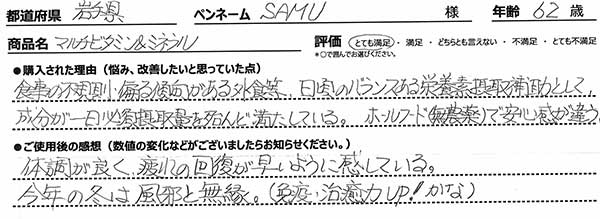 都道府県 岩手県 ペンネーム SAMU 様 年齢 62 歳
商品名 マルチビタミン&ミネラル 評価 とても満足・満足・どちらとも言えない・不満足・とても不満足
*○で囲んでお選びください。
●購入された理由（悩み、改善したいと思っていた点）
食事の不規則・偏る傾向がある外食等、日頃のバランスある栄養素摂取補助として、
成分が一日必須摂取量を殆んど満たしている。ホールフード(無農薬)で安心感が違う。
●ご使用後の感想（数値の変化などがございましたらお知らせください。）
体調が良く、疲れの回復が早いように感じている。
今年の冬は風邪と無縁。(免疫・治癒力UP!かな)